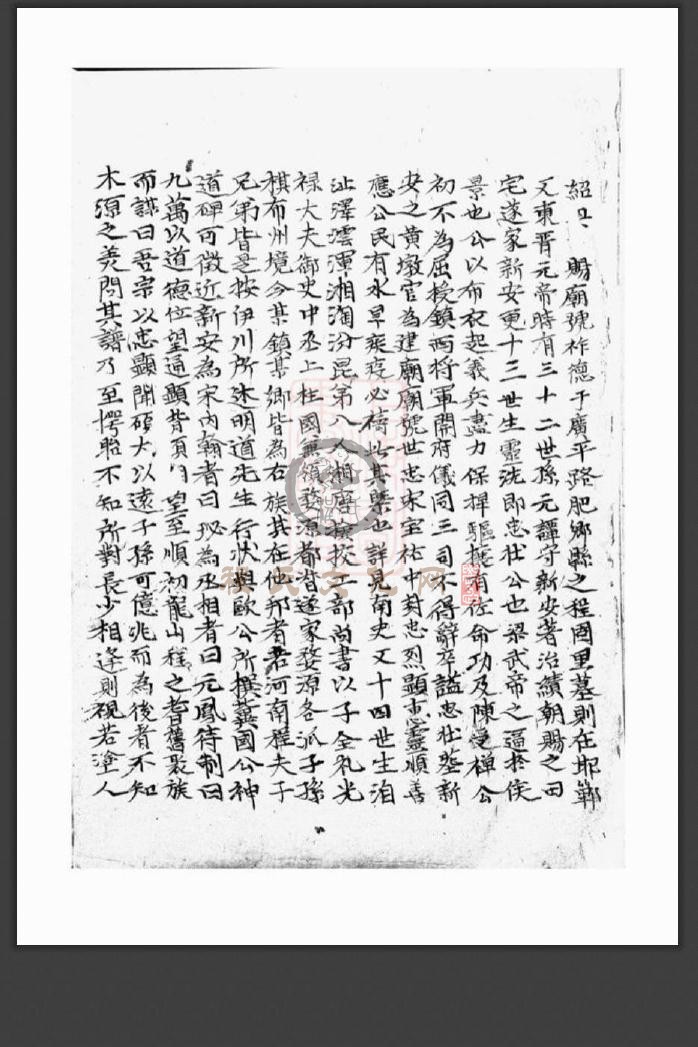 紹　賜廟號祚德于廣平路肥鄉縣之程園里墓則在邯鄲
又東晋元帝時有三十二世孫元譚守新安著治績朝賜之田
宅遂家新安更十三世生靈洗即忠壮公也梁武帝之逼於侯
景也公以布衣起義兵盡力保捍驅有任命功及陳受禅公
初不為屈授鎮西将軍開府儀同三司不得辭卒謚忠壮塟新
安之黄墩官為建廟廟號世忠宋宝祐中封忠烈顯惠靈順善
應公民有水旱疾疫必禱此其槩也詳見南史又十四世生洎
沚澤澐渾湘淘汾昆弟八人湘磨檢校工部尚書以子全礼光
禄大夫御史中丞上柱國兼領婺源都省遂家婺源各派子孫
棋布州境今某鎮某鄉皆為右族其在他邦者若河南程夫子
兄弟皆是按伊川所述明道先生行状與歐公所撰冀國公神
道碑可徵近新安為宋内翰者曰珌為丞相者曰元鳳待制曰
九萬以道德位望通顯皆項望至順初龍山程之者舊裒族
而議曰吾宗以忠顯開碩大以遠子孫可億兆而為後者不知
木源之義問其譜乃至愕眙不知所對長少相逢則視若塗人